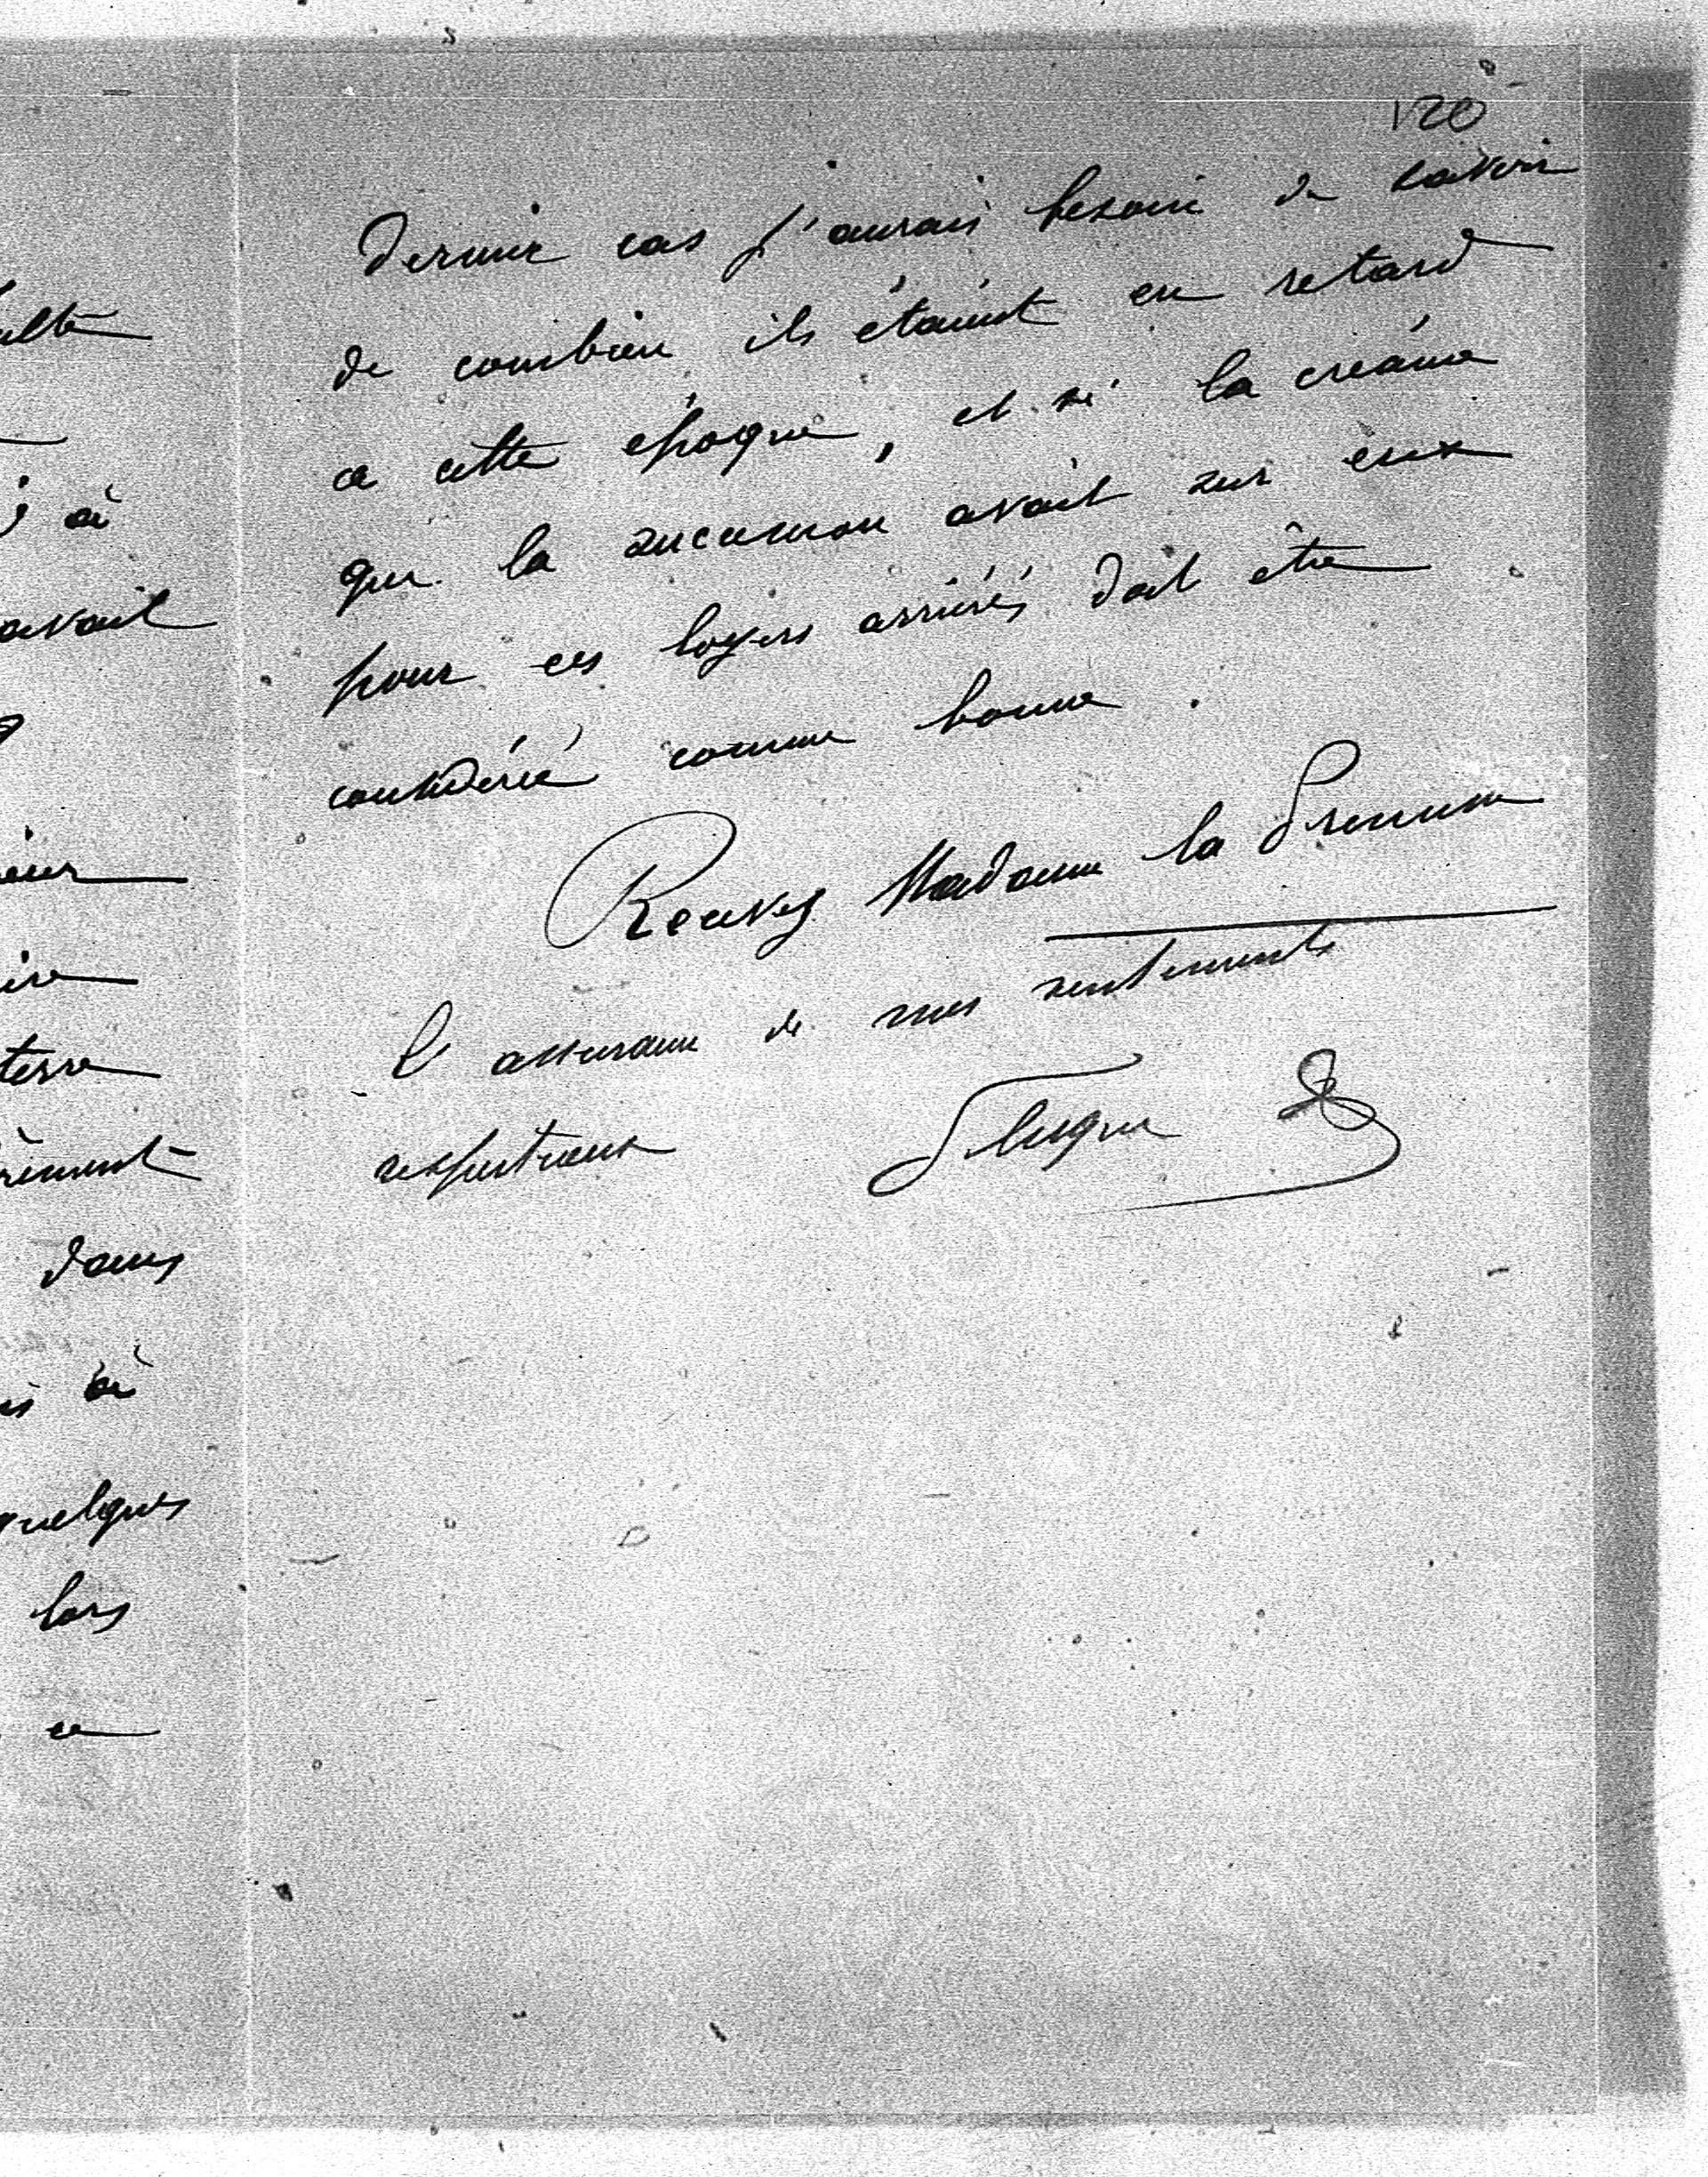 120
dernier cas j'aurais besoin de savoir
de combien ils étaient en retard
a cette époque, et si la créance
que la succession avait sur eux
pour ces loyers arriérés doit être
considérée comme bonne.
Recevez Madame la
l'assurance de mes sentiments
respectueux
à
avait
dans
à
quelques
lors
ce